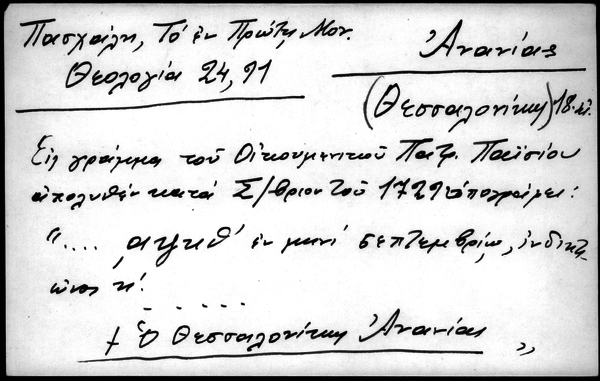 Πασχάλη, Τό ἐν Πρώτῃ Μον.
Θεολογία 24,91
Ἀνανίας
(Θεσσαλονίκης) 18 αἰ.
Εἰς γράμμα τοῦ Οἰκουμενικοῦ Πατρ. Παϊσίου
ἀπολυθέν κατά Σ/βριον τοῦ 1729 ὑπογράφει:
".... ͵αψκθ' ἐν μηνί σεπτεμβρίῳ, ἰνδικτι-
ῶνος η'.
. . . . .
† Ὁ Θεσσαλονίκης Ἀνανίας "